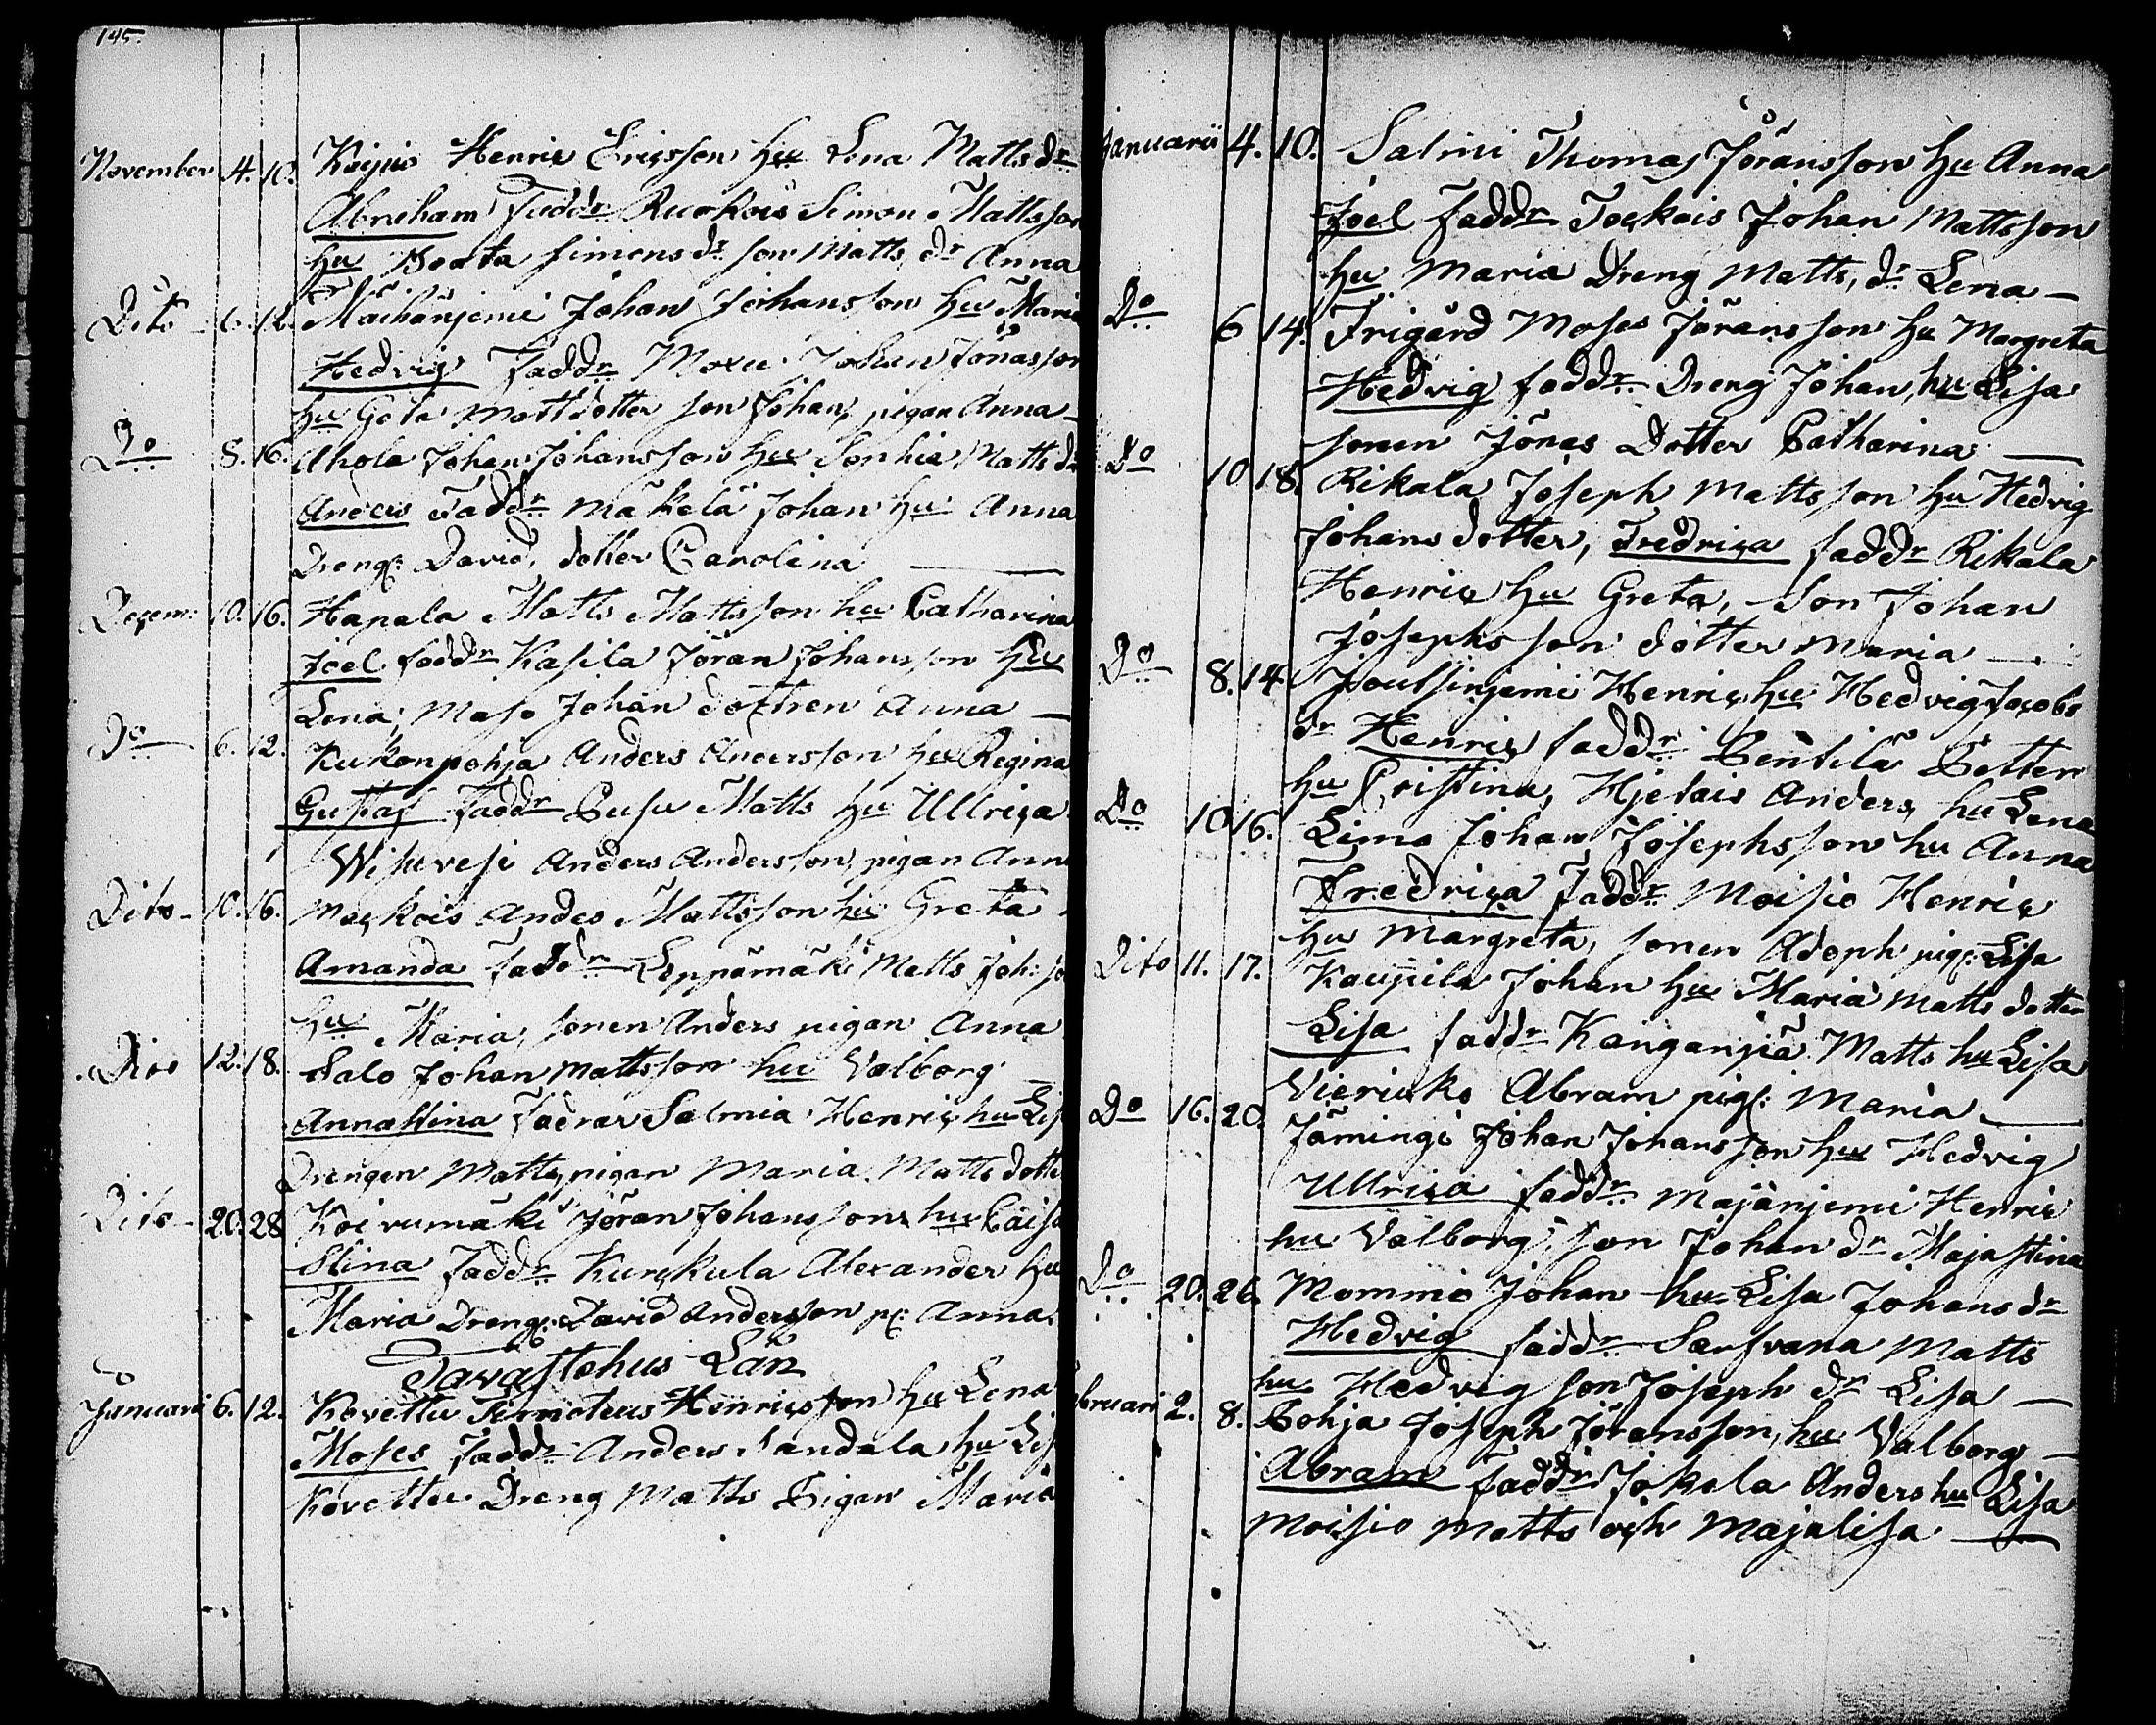 145.
November 4. 10. Kaipio Henric Ericsson hu Lena Matts dr
Abraham Faddr Ruokois Simon Mattsson
hu Beata simons dr son Matts, dr Anna
Dito 6. 12. Maihänjemi Johan Johansson hu Maria
Hedvig Faddr Moxu Johan Jönasson
hu Geta Mattdotter son Johan, pigan Anna
Do 8. 16. Ahola Johan Johansson hu Sophia Matts dr
Anders Faddr Mäkelä Johan hu Anna
Dreng: David, dotter Carolina
Decem: 10. 16. Hapala Matts Mattsson hu Catharina
Joel faddr Kasila Jöran Johansson hu
Lena, Maso Johan dottren Anna
Do 6. 12. Kukonpohja Anders Andersson hu Regina
Gustaf Faddr Pusu Matts hu Ullrica
Wisuvesi Anders Andersson, pigan Ann
Dito 10. 16. Mackois Andes Mattsson hu Greta
Amanda faddr Leppämäki Matts Joh: so
hu Maria, sonen Anders pigan Anna
Dito 12. 18. Salo Johan Mattsson hu Valborg
Annastina Fadrar Salmia Henric hu Lis
Drengen Matts, pigan Maria Matts dotte
Dito 20. 28 Koivumäki Jöran Johansson hu Caisa
Stina Faddr Kurckula Alexander hu
Maria Dreng: David Andersson p: Anna
Tavastehus Län
Januari 6. 12. Kovettu Timoteus Henricsson hu Lena
Moses Faddr Anders Sandala hu Lis
Kovettu Dreng Matts Pigan Maria
Januarii 4. 10. Salmi Thomas Jöransson hu Anna
Joel Faddr Tockois Johan Mattsson
hu Maria Dreng Matts, dr Lena
Do 6 14. Frigård Moses Jöransson hu Margreta
Hedvig faddr Dreng Johan, hu Lisa
sonen Jönas Dotter Catharina
Do 10 18. Rikala Joseph Mattsson hu Hedvig
Johans dotter, Fredrica faddr Rikala
Henric hu Greta, Son Johan
Josephsson dotter Maria
Do 8. 14. Joutsinjemi Henric hu Hedvig Jacobs
dr Henric faddr Pentilä Petter
hu Cristina, Hjelais Anders, hu Lena
Do 10 16. Limo Johan Josephsson hu Anna
Fredrica Faddr Moisio Henric
hu Margreta, sonen Adoph pig: Lisa
Dito 11. 17. Kaupila Johan hu Maria Matts dotter
Lisa faddr Kanganpiä Matts hu Lisa
Vieruks Abram pig: Maria
Do 16. 20. Jämingi Johan Johansson hu Hedvig
Ullrica faddr Majänjemi Henric
hu Valborg, son Johan dr Majastina
Do 20. 26. Mommo Johan hu Lisa Johans dr
Hedvig faddr Sarsvana Matts
hu Hedvig son Joseph dr Lisa
bruari 2. 8. Pohja Joseph Jöransson, hu Valborg
Abram Faddr Jokela Anders hu Lisa
Moisio Matts och Majalisa